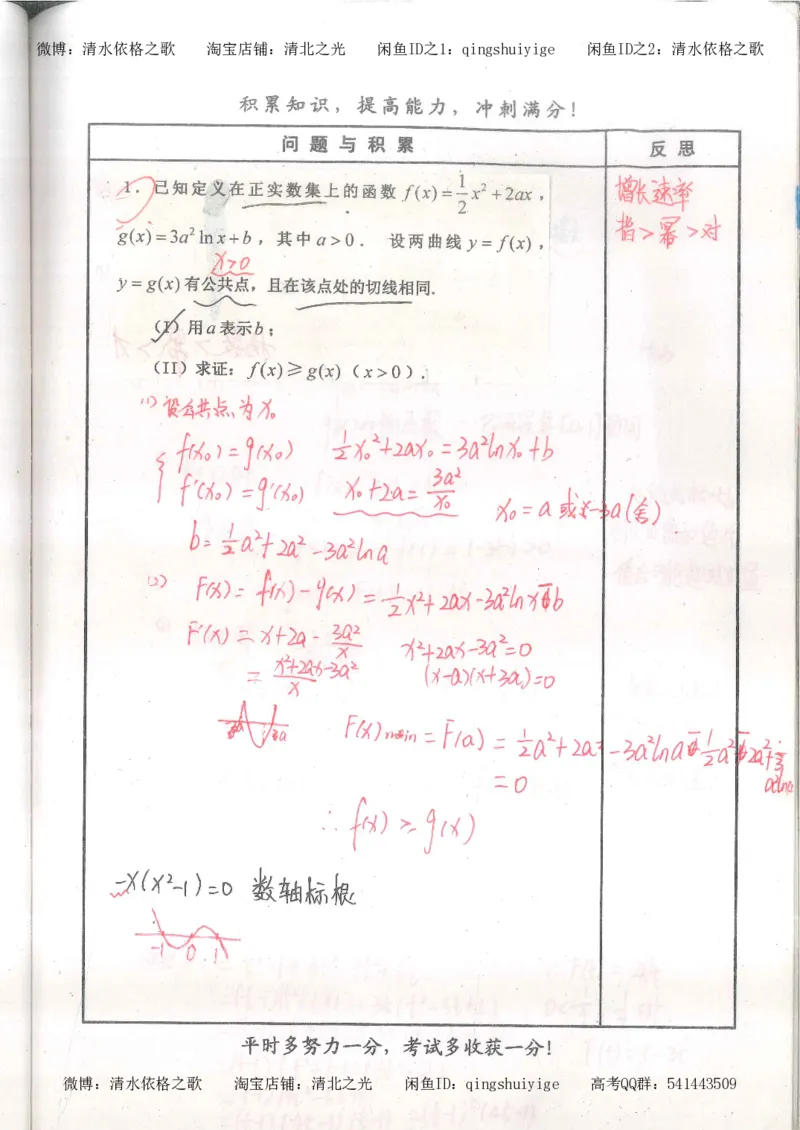 微博：清水依格之歌 淘宝店铺：清北之光 闲鱼ID之1：qingshuiyige 闲鱼ID之2：清水依格之歌
积累知识，提高能力，冲刺满分！
问题与积累 反思
1．已知定义在正实数集上的函数 f(x)=1/2 x²+2ax，
g(x)=3a²lnx+b，其中a>0． 设两曲线 y=f(x)，
x>0
y=g(x)有公共点，且在该点处的切线相同.
(I) 用a表示b；
(II) 求证：f(x)≥g(x)（x>0）.
增长速率
指>幂>对
(1) 设公共点为x₀
f(x₀)=g(x₀) 1/2 x₀²+2ax₀=3a²lnx₀+b
f'(x₀)=g'(x₀) x₀+2a=3a²/x₀
x₀=a 或x=-3a(舍)
b=1/2 a²+2a²-3a²lna
(2) F(x)=f(x)-g(x)=1/2 x²+2ax-3a²lnx-b
F'(x)=x+2a-3a²/x x²+2ax-3a²=0
=x²+2ax-3a²/x (x-a)(x+3a)=0
F(x)min=F(a)=1/2 a²+2a²-3a²lna-1/2 a²-2a²+3a²lna
=0
∴ f(x)≥g(x)
-x(x²-1)=0 数轴标根
-1 0 1
平时多努力一分，考试多收获一分！
微博：清水依格之歌 淘宝店铺：清北之光 闲鱼ID：qingshuiyige 高考QQ群：541443509